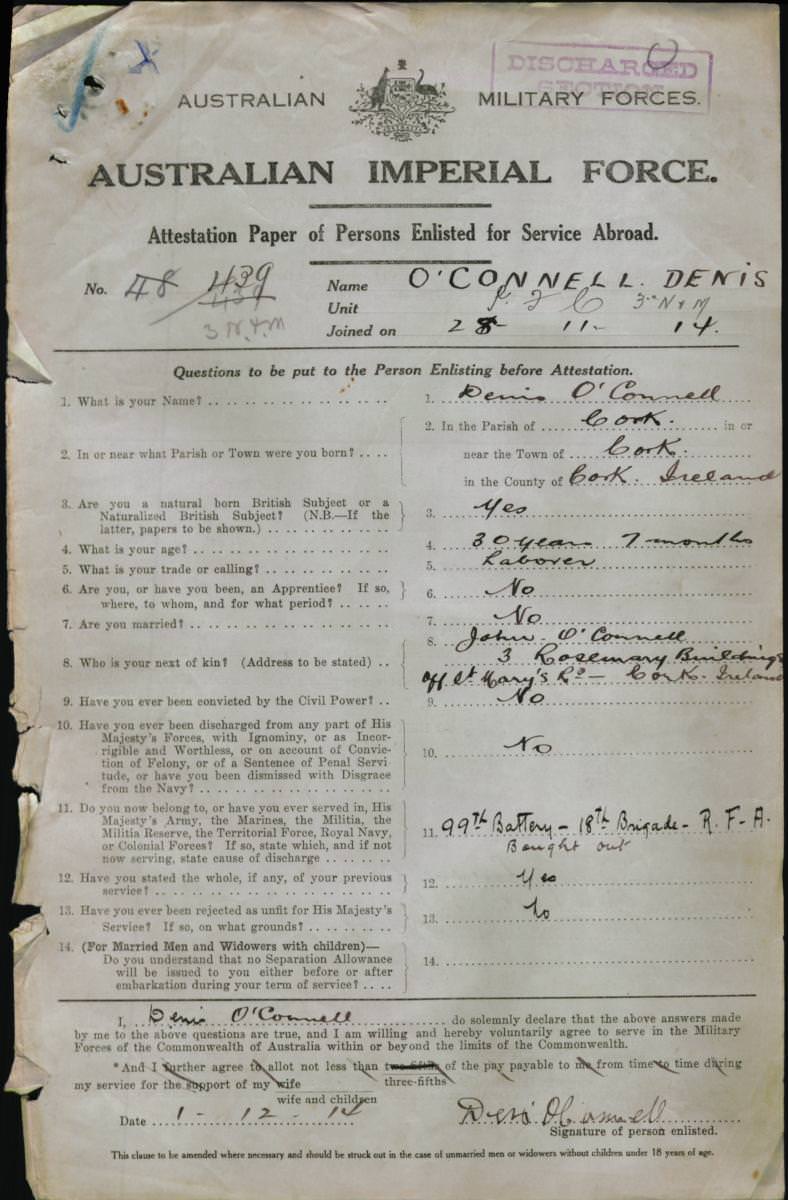 DISCHARGED
SECTION
AUSTRALIAN MILITARY FORCES.
AUSTRALIAN IMPERIAL FORCE.
Attestation Paper of Persons Enlisted for Service Abroad.
No. 48 439
439
3 N & M
Name O'CONNELL. DENIS
Unit 3rd N & M
Joined on 28 - 11 - 14.
Questions to be put to the Person Enlisting before Attestation.
1. What is your Name? .. 1. Denis O'Connell
2. In or near what Parish or Town were you born? .. 2. In the Parish of Cork. in or
near the Town of Cork.
in the County of Cork. Ireland
3. Are you a natural born British Subject or a
Naturalized British Subject? (N.B.—If the
latter, papers to be shown.) .. 3. Yes
4. What is your age? .. 4. 30 years 7 months
5. What is your trade or calling? .. 5. Laborer
6. Are you, or have you been, an Apprentice? If so,
where, to whom, and for what period? .. 6. No
7. Are you married? .. 7. No
8. Who is your next of kin? (Address to be stated) .. 8. John O'Connell
3 Rosemary Buildings
off St Mary's Rd — Cork. Ireland
9. Have you ever been convicted by the Civil Power? .. 9. No
10. Have you ever been discharged from any part of His
Majesty's Forces, with Ignominy, or as Incor-
rigible and Worthless, or on account of Convic-
tion of Felony, or of a Sentence of Penal Servi
tude, or have you been dismissed with Disgrace
from the Navy? .. 10. No
11. Do you now belong to, or have you ever served in, His
Majesty's Army, the Marines, the Militia, the
Militia Reserve, the Territorial Force, Royal Navy,
or Colonial Forces? If so, state which, and if not
now serving, state cause of discharge .. 11. 99th Battery - 18th Brigade - R. F. A.
Bought out
12. Have you stated the whole, if any, of your previous
service? .. 12. Yes
13. Have you ever been rejected as unfit for His Majesty's
Service? If so, on what grounds? .. 13. No
14. (For Married Men and Widowers with children)—
Do you understand that no Separation Allowance
will be issued to you either before or after
embarkation during your term of service? .. 14.
I, Denis O'Connell do solemnly declare that the above answers made
by me to the above questions are true, and I am willing and hereby voluntarily agree to serve in the Military
Forces of the Commonwealth of Australia within or beyond the limits of the Commonwealth.
*And I further agree to allot not less than two-fifths of the pay payable to me from time to time during
three-fifths
my service for the support of my wife
wife and children
Date 1 - 12 - 14
Denis O'Connell
Signature of person enlisted.
This clause to be amended where necessary and should be struck out in the case of unmarried men or widowers without children under 18 years of age.